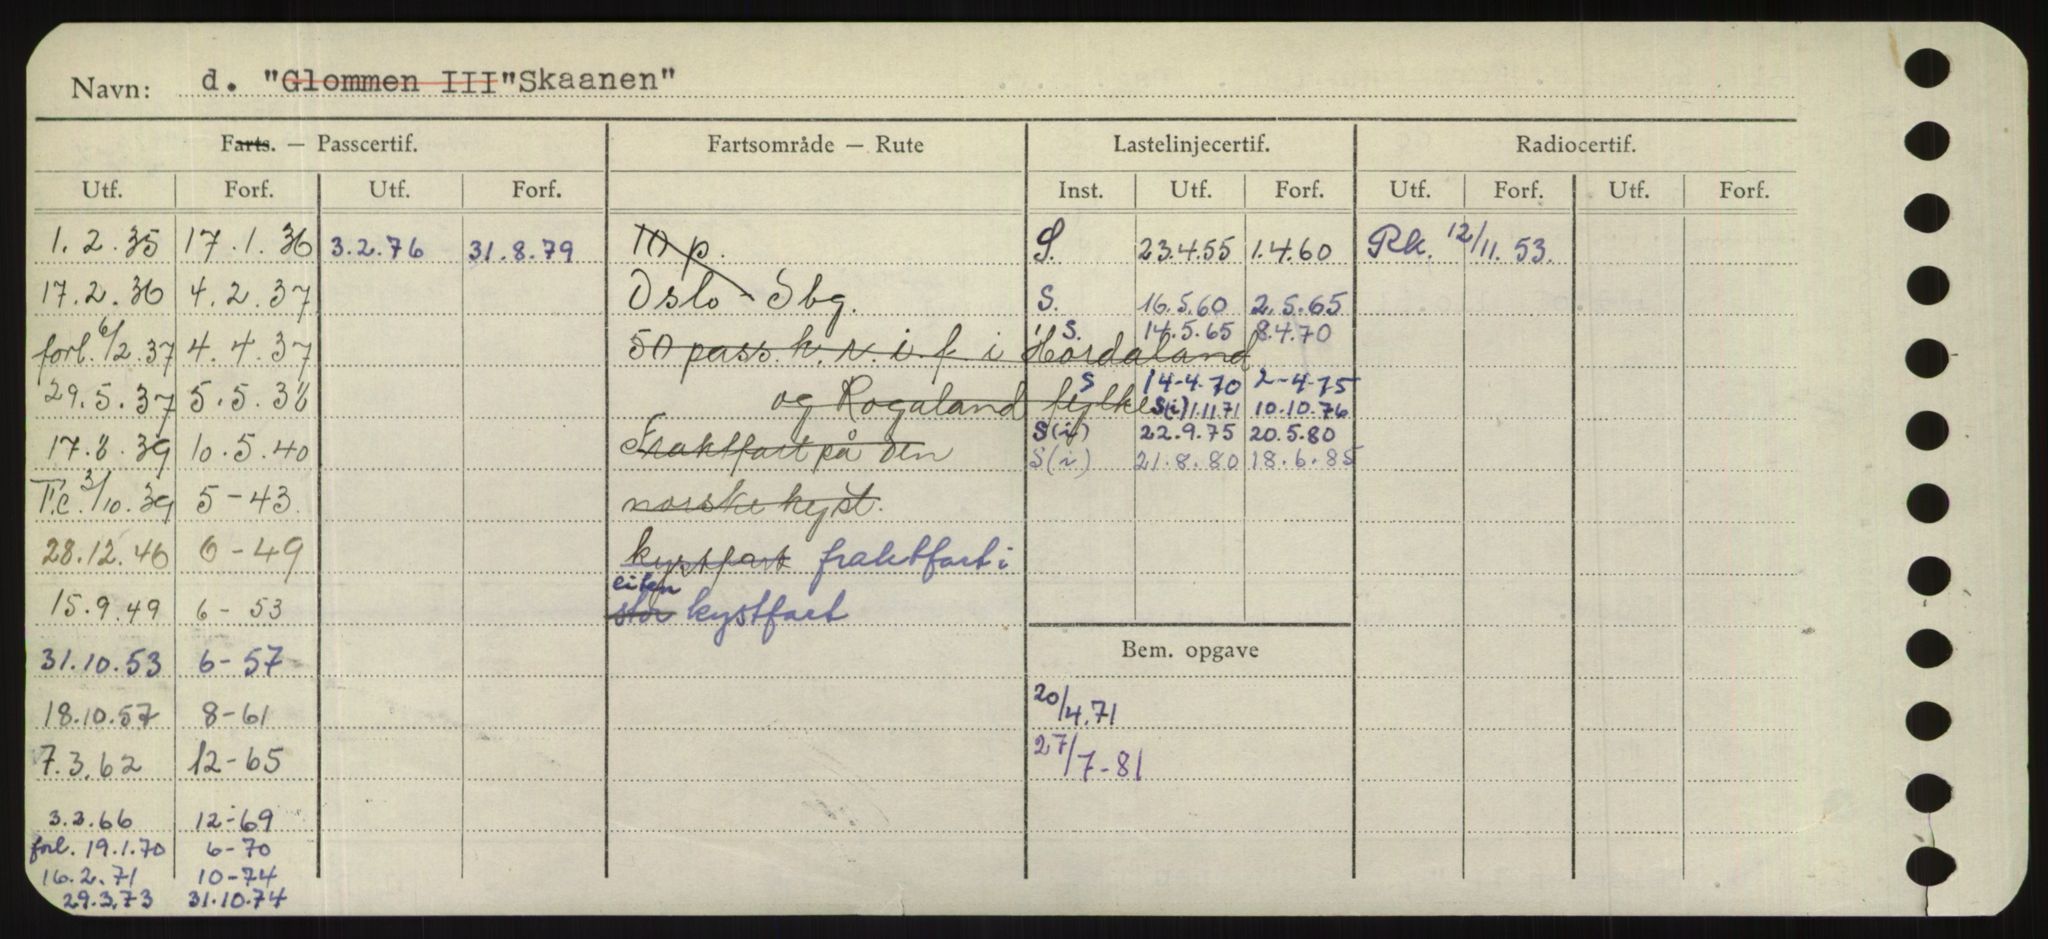 Navn: d. "Glommen III" Skaanen"
Farts. — Passcertif. Fartsområde — Rute Lastelinjecertif. Radiocertif.
Utf. Forf. Utf. Forf. Inst. Utf. Forf. Utf. Forf. Utf. Forf.
1.2.35 17.1.36 3.2.76 31.8.79 10 p. S. 23.4.55 1.4.60 Rk. 12/11.53.
17.2.36 4.2.37 Oslo - Sbg. S. 16.5.60 2.5.65
S. 14.5.65 8.4.70
forl. 6/2.37 4.4.37 50 pass. k. r. i. f. i Hordaland
S 14-4.70 2-4-75
29.5.37 5.5.38 og Rogaland fylke S(i) 1.11.71 10.10.76
S(i) 22.9.75 20.5.80
17.8.39 10.5.40 Fraktfart på den S(i) 21.8.80 18.6.85
F.c. 3/10.39 5-43. norske kyst.
28.12.46 6-49 kystfart fraktfart i
liten
15.9.49 6-53 stor kystfart
31.10.53 6-57 Bem. opgave
18.10.57 8-61 20/4.71
7.3.62 12-65 27/7-81
3.3.66 12-69
forl. 19.1.70 6-70
16.2.71 10-74
29.3.73 31.10.74